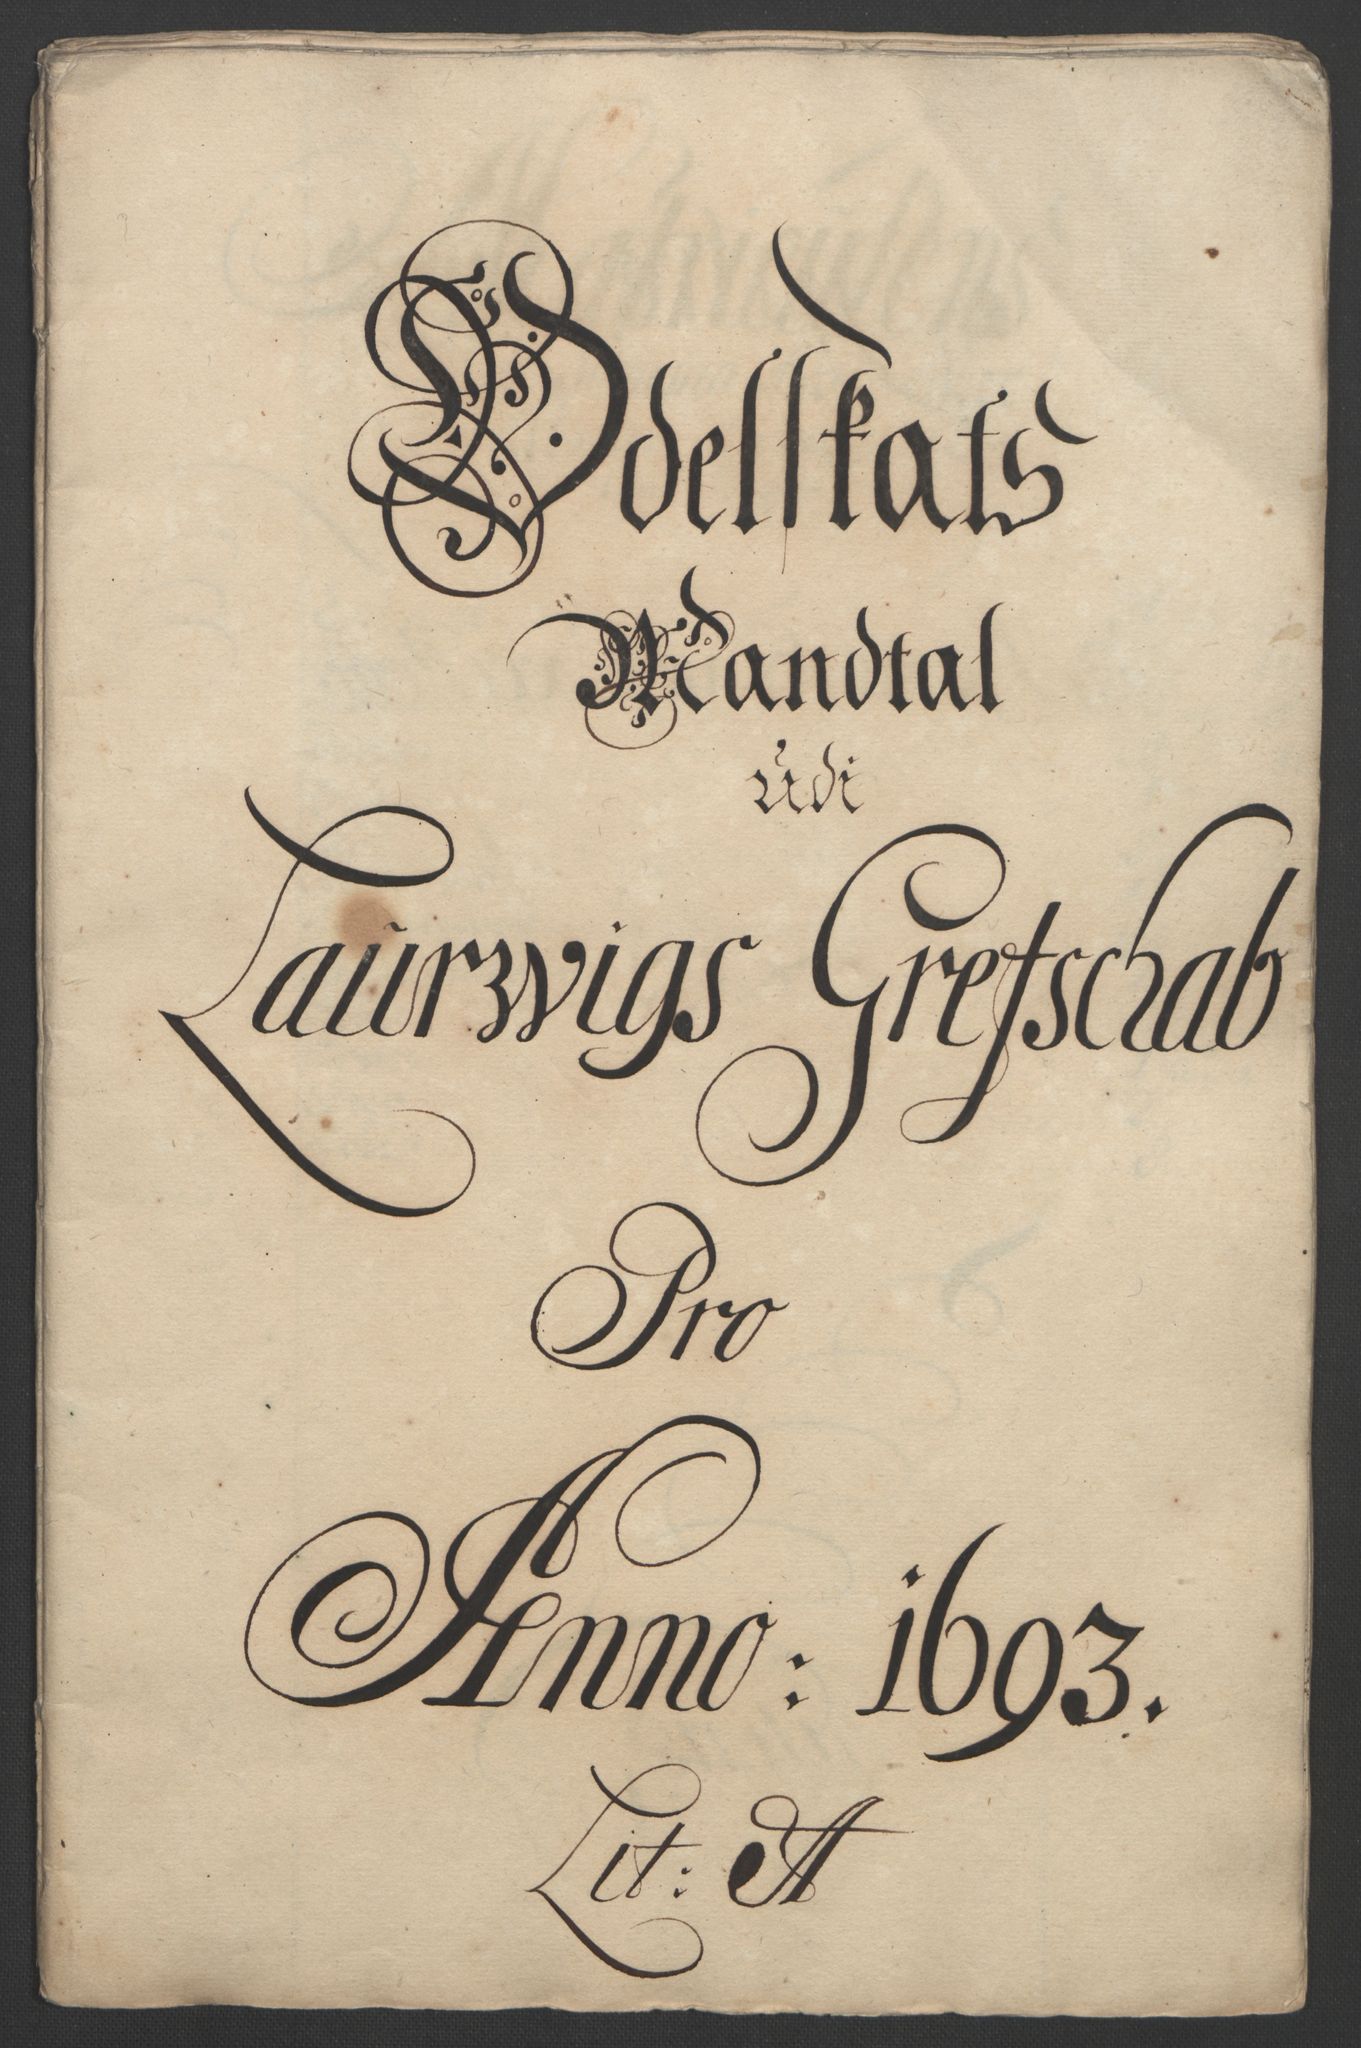 Odelskats
Mandtal
udi
Laurwigs Grefschab
Pro
Anno: 1693.
Lit: A